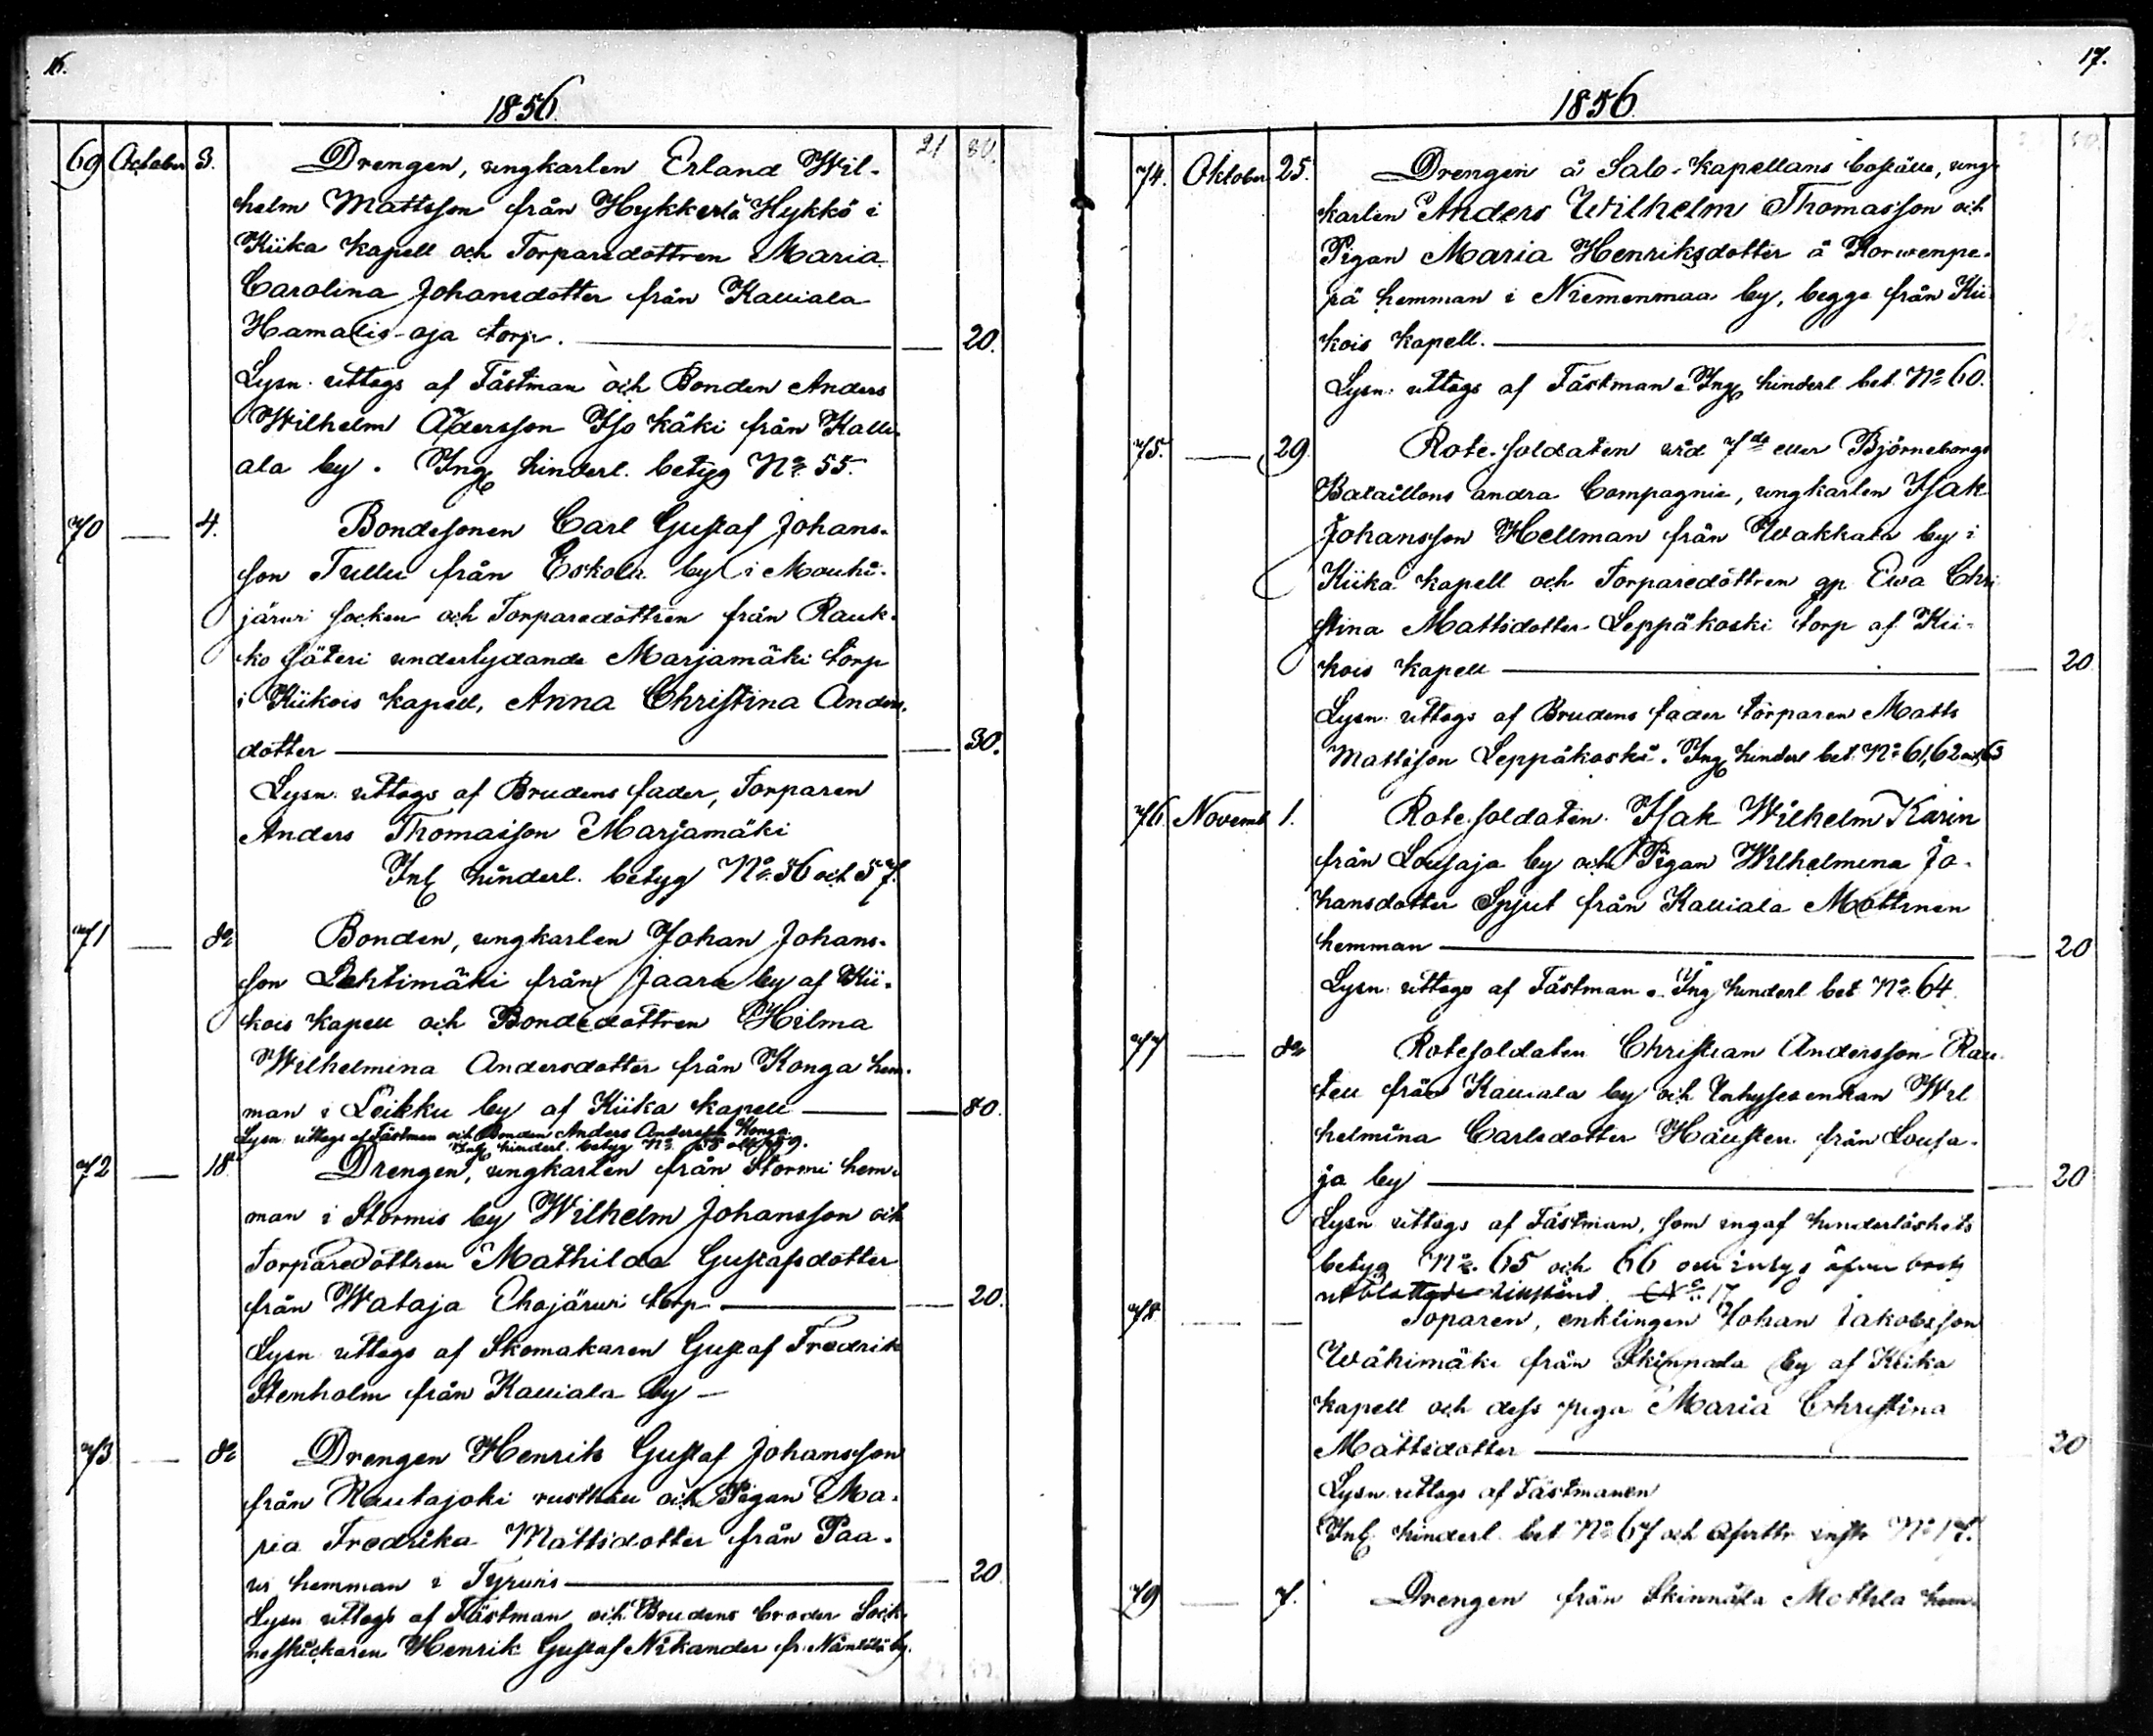 16.
1856.
69 October 3. Drengen, ungkarlen Erland Wil-
helm Mattsson från Hykkerlä Hykkö i
Kiika kapell och Torparedottren Maria
Carolina Johansdotter från Kalliala
Hamalis-oja torp. — 20.
Lysn. uttogs af Fästman och Bonden Anders
Wilhelm Andersson Iso Käki från Kalli-
ala by. Ing. hinderl. betyg No 55.
70 — 4. Bondesonen Carl Gustaf Johans-
son Tullu från Eskola by i Mouhi-
järwi socken och Torparedottren från Rauk-
ko säteri underlydande Marjamäki torp
i Kiikois kapell, Anna Christina Anders-
dotter — 30.
Lysn. uttogs af Brudens fader, Torparen
Anders Thomasson Marjamäki
Inl. hinderl. betyg No 56 och 57.
71 — do Bonden, ungkarlen Johan Johans-
son Lehtimäki från Jaara by af Kii-
kois kapell och Bondedottren Hilma
Wilhelmina Andersdotter från Konga hem-
man i Leikku by af Kiika kapell — 80.
Lysn. uttogs af Fästman och Bonden Anders Andersson Konga.
Inl. hinderl. betyg No 58 och 59.
72 — 18. Drengen, ungkarlen från Stormi hem-
man i Stormis by Wilhelm Johansson och
Torparedottren Mathilda Gustafsdotter
från Wataja Ehojärwi torp — 20.
Lysn uttogs af Skomakaren Gustaf Fredrik
Stenholm från Kalliala by —
73 — do Drengen Henrik Gustaf Johansson
från Rautajoki rusthåll och Pigan Ma-
ria Fredrika Mattsdotter från Paa-
wi hemman i Tyrwis — 20.
Lysn uttogs af Fästman och Brudens broder Sock-
neskickaren Henrik Gustaf Nikander fr. by.
17.
1856.
74. Oktober 25. Drengen å Salo-Kapellans boställe, ung-
karlen Anders Wilhelm Thomasson och
Pigan Maria Henriksdotter å Korwenpe-
rä hemman i Niemenmaa by, begge från Kii-
kois kapell. —
Lysn. uttogs af Fästman. Ing. hinderl. bet. No 60.
75. — 29. Rote-soldaten wid 7de eller Björneborgs
Bataillons andra Compagnie, ungkarlen Isak
Johansson Hellman från Wakkala by i
Kiika kapell och Torparedottren Ewa Chri-
stina Mattsdotter Leppäkoski torp af Kii-
kois kapell — 20
Lysn. uttogs af Brudens fader torparen Matts
Mattsson Leppäkoski. Ing. hinderl bet. No 61, 62 och 63
76 Novemb 1. Rote soldaten Isak Wilhelm Karin
från Lousaja by och Pigan Wilhelmina Jo-
hansdotter Spjut från Kalliala Mattinen
hemman — 20
Lysn uttogs af Fästman. Ing hinderl bet No 64.
77 — do Rotesoldaten Christian Andersson Rau-
tell från Kalliala by och Inhyses enkan Wil
helmina Carlsdotter från Lousa-
ja by — 20
Lysn uttogs af Fästman, som ingaf hinderlöshets
betyg No. 65 och 66 och intyg
No 17
78 — — Toparen, enklingen Johan Jakobsson
Wähimäki från Skinnala by af Kiika
kapell och dess piga Maria Christina
Mattsdotter — 20
Lysn. uttogs af Fästmanen
Inl. hinderl. bet No 67 och No 17.
79 — 7. Drengen från Skinnala Mottila hem-